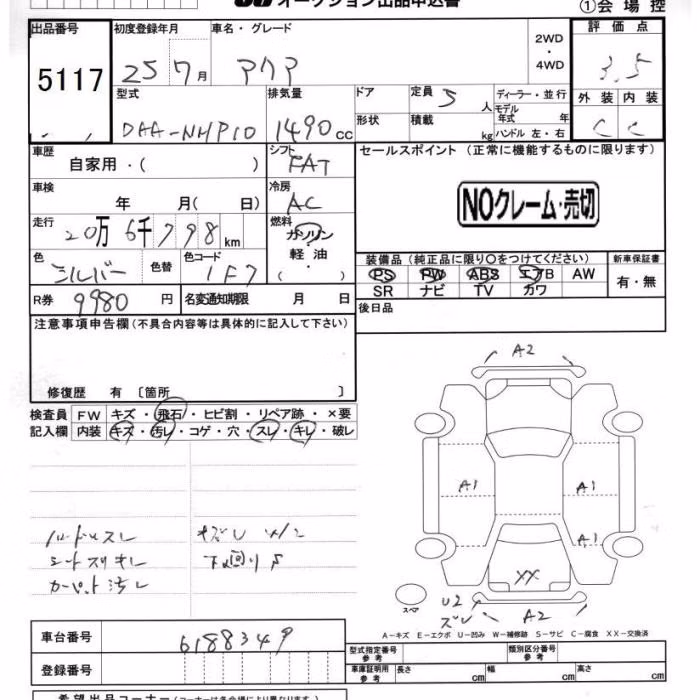 オークション出品申込書
①会場控
出品番号 5117
初度登録年月 25 7月
車名・グレード アクア
2WD・4WD
評価点 3.5
型式 DAA-NHP10
排気量 1490cc
ドア
形状
定員 5人
積載 kg
ディーラー・並行
モデル年式 年
ハンドル 左・右
外装 C 内装 C
車歴 自家用・( )
シフト FAT
セールスポイント (正常に機能するものに限ります)
車検 年 月( 日)
冷房 AC
NOクレーム・売切
走行 20万6千798km
燃料 ガソリン・軽油・( )
色 シルバー 色替
色コード 1F7
装備品 (純正品に限り○をつけてください)
新車保証書
PS PW ABS エアB AW
有・無
SR ナビ TV カワ
R券 9980円
名変通知期限 月 日
後日品
注意事項申告欄(不具合内容等は具体的に記入して下さい)
修復歴 有 〔箇所 〕
検査員記入欄
FW キズ・飛石・ヒビ割・リペア跡・×要
内装 キズ・汚レ・コゲ・穴・スレ・キレ・破レ
ハンドルスレ
シートスリキレ
カーペット汚レ
下回りS
A2
A1 A1
A1
XX
スペア
U2
A2
A-キズ E-エクボ U-凹み W-補修跡 S-サビ C-腐食 XX-交換済
車台番号 6188349
型式指定番号 参考
類別区分番号 参考
登録番号
車庫証明用 参考
長さ cm 幅 cm 高さ cm
希望出品コーナー(コーナーは各会場により異なります)